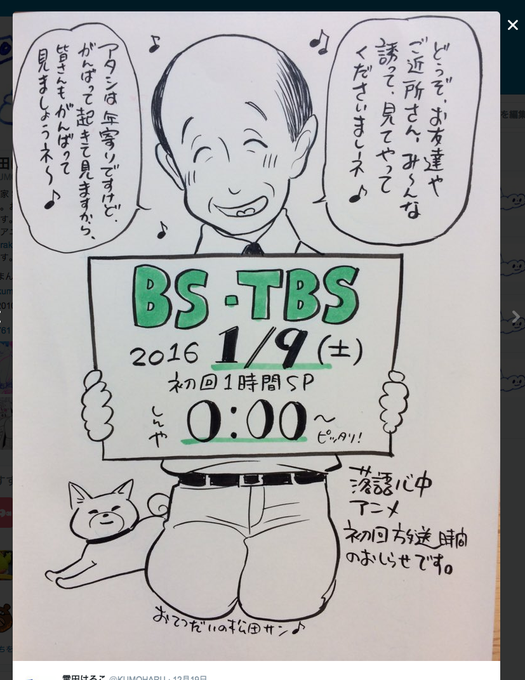 どうぞ、お友達や
ご近所さん、み〜んな
誘って、見てやって
くださいましネ♪
アタシは年寄りですけど、
がんばって起きて見ますから、
皆さんもがんばって
見ましょうネ〜♪
BS・TBS
2016 1/9(土)
初回1時間SP
しんや 0:00〜
ピッタリ!
落語心中
アニメ
初回放送時間
のおしらせです。
おてつだいの松田サン♪
雲田はるこ @KUMOHARU・12月19日